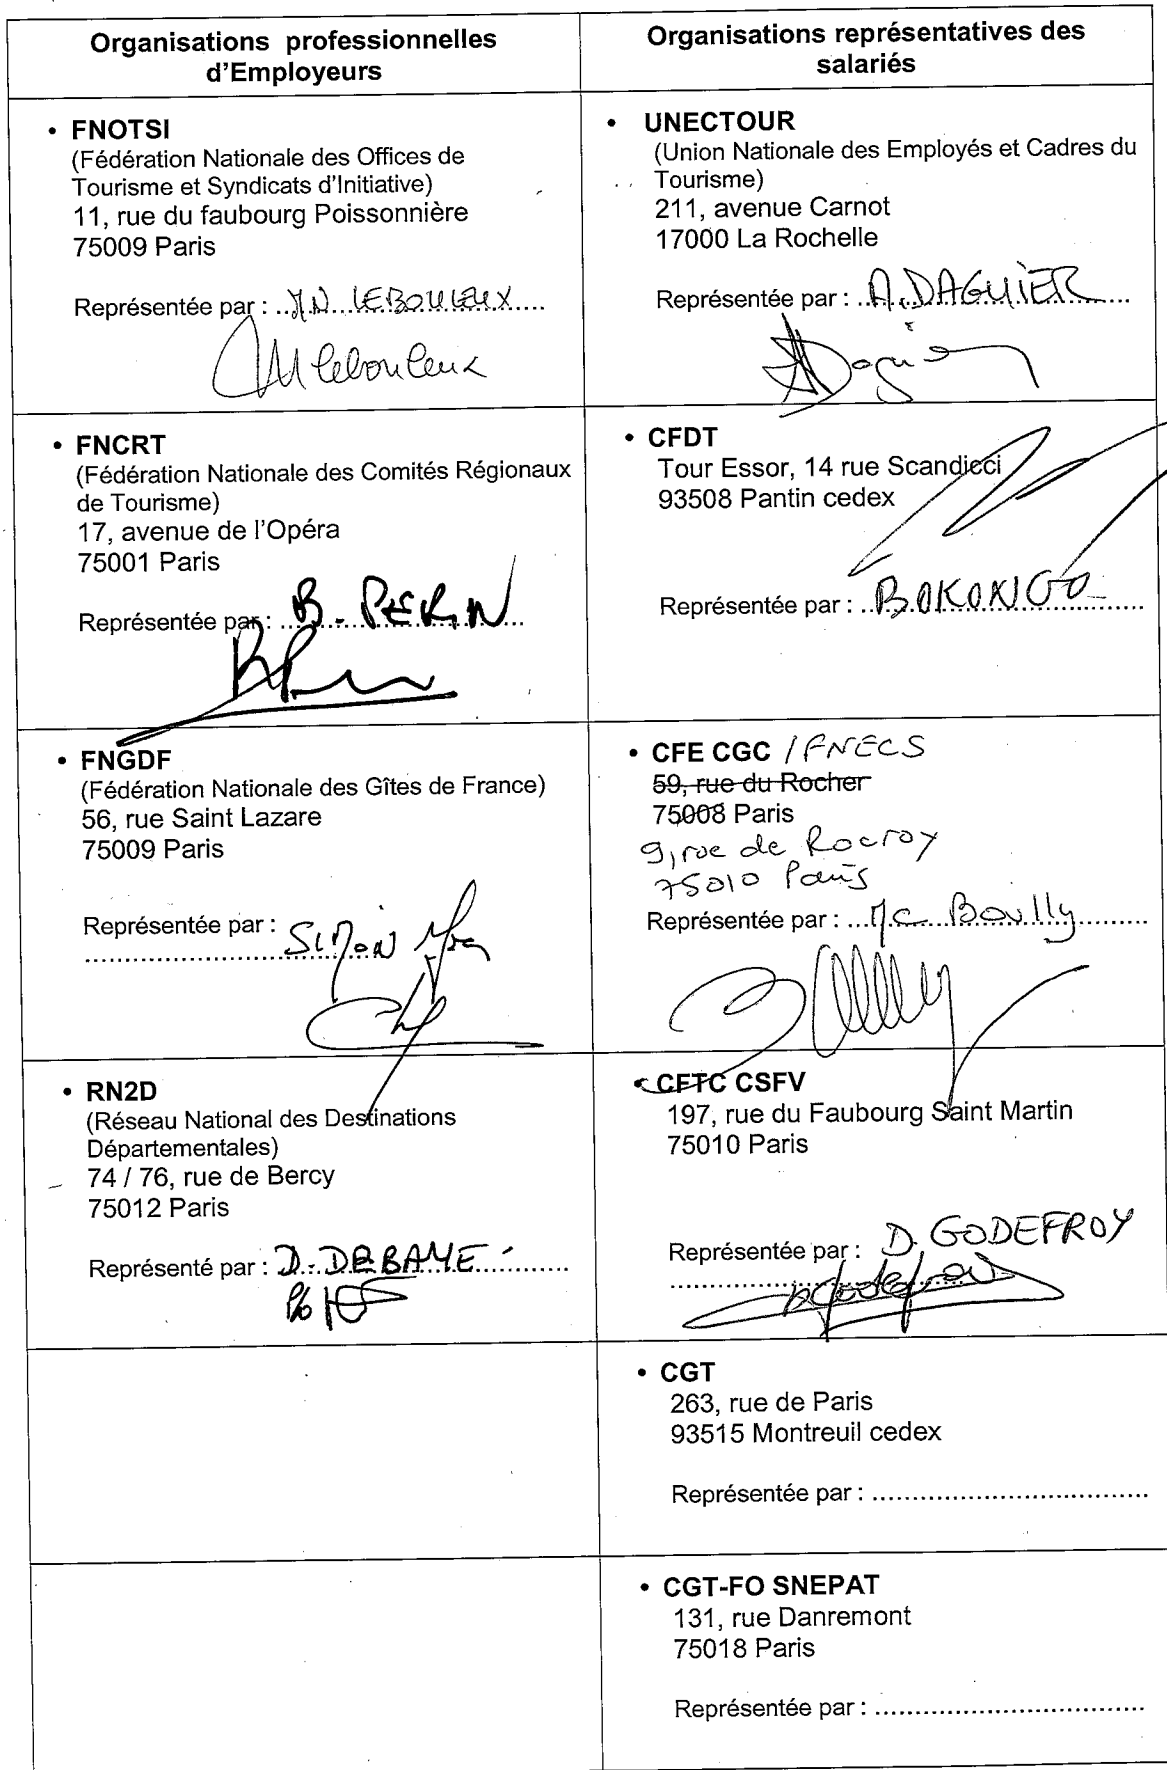 Organisations professionnelles
d'Employeurs
Organisations représentatives des
salariés
• FNOTSI
(Fédération Nationale des Offices de
Tourisme et Syndicats d'Initiative)
11, rue du faubourg Poissonnière
75009 Paris
Représentée par : M.N. LEBOULEUX
• UNECTOUR
(Union Nationale des Employés et Cadres du
Tourisme)
211, avenue Carnot
17000 La Rochelle
Représentée par : A. DAGUIER
• FNCRT
(Fédération Nationale des Comités Régionaux
de Tourisme)
17, avenue de l'Opéra
75001 Paris
Représentée par : B. PERIN
• CFDT
Tour Essor, 14 rue Scandicci
93508 Pantin cedex
Représentée par : BOKONGO
• FNGDF
(Fédération Nationale des Gîtes de France)
56, rue Saint Lazare
75009 Paris
Représentée par :
SIMON
• CFE CGC / FNECS
59, rue du Rocher
75008 Paris
9, rue de Rocroy
75010 Paris
Représentée par : MC Boully
• RN2D
(Réseau National des Destinations
Départementales)
74 / 76, rue de Bercy
75012 Paris
Représenté par : D. DEBAYE
P/o
• CFTC CSFV
197, rue du Faubourg Saint Martin
75010 Paris
Représentée par : D. GODEFROY
• CGT
263, rue de Paris
93515 Montreuil cedex
Représentée par : ..................................
• CGT-FO SNEPAT
131, rue Danremont
75018 Paris
Représentée par : ..................................